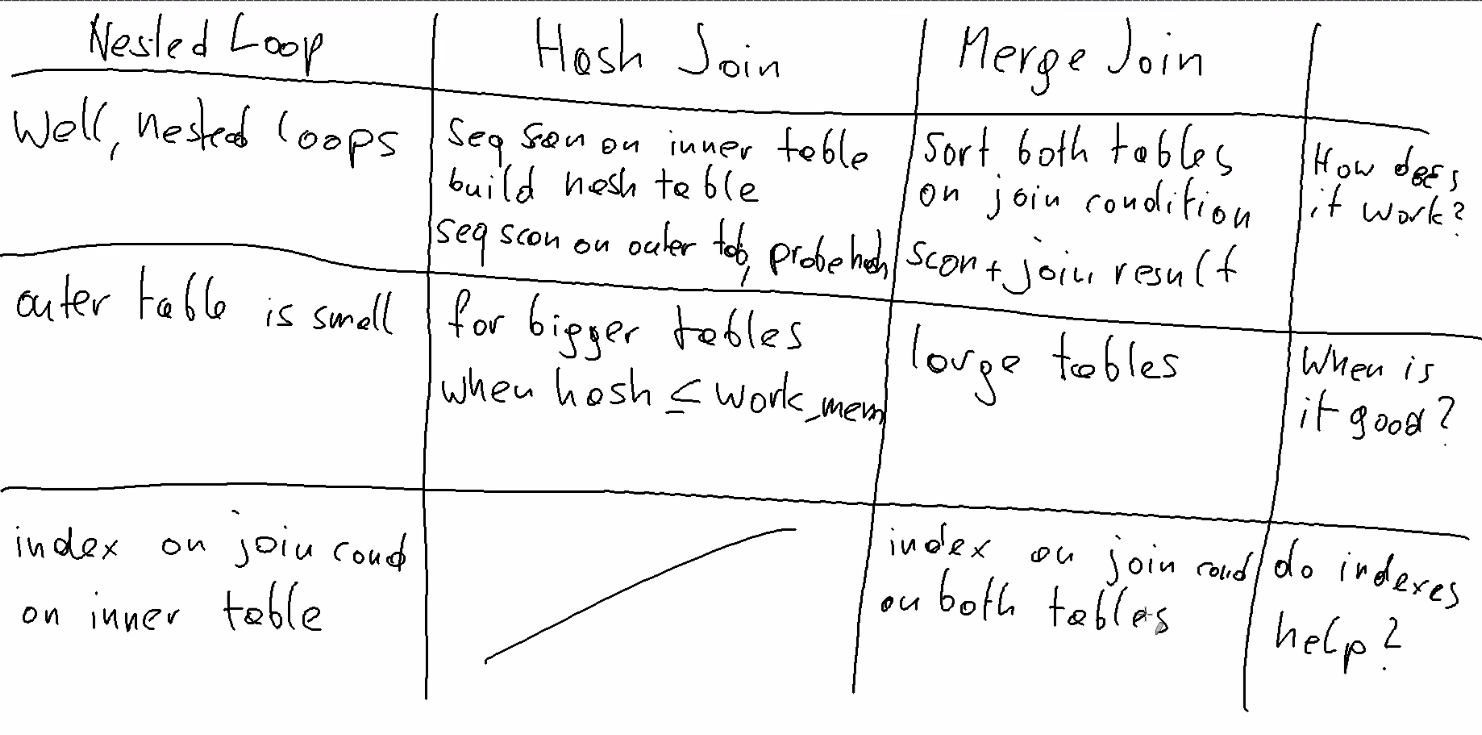 Nested Loop
Hash Join
Merge Join
Well, nested loops
seq scan on inner table
build hash table
seq scan on outer tab, probe hash
sort both tables
on join condition
scan + join result
How does
it work?
outer table is small
for bigger tables
when hash ≤ work_mem
large tables
When is
it good?
index on join cond
on inner table
index on join cond
on both tables
do indexes
help?